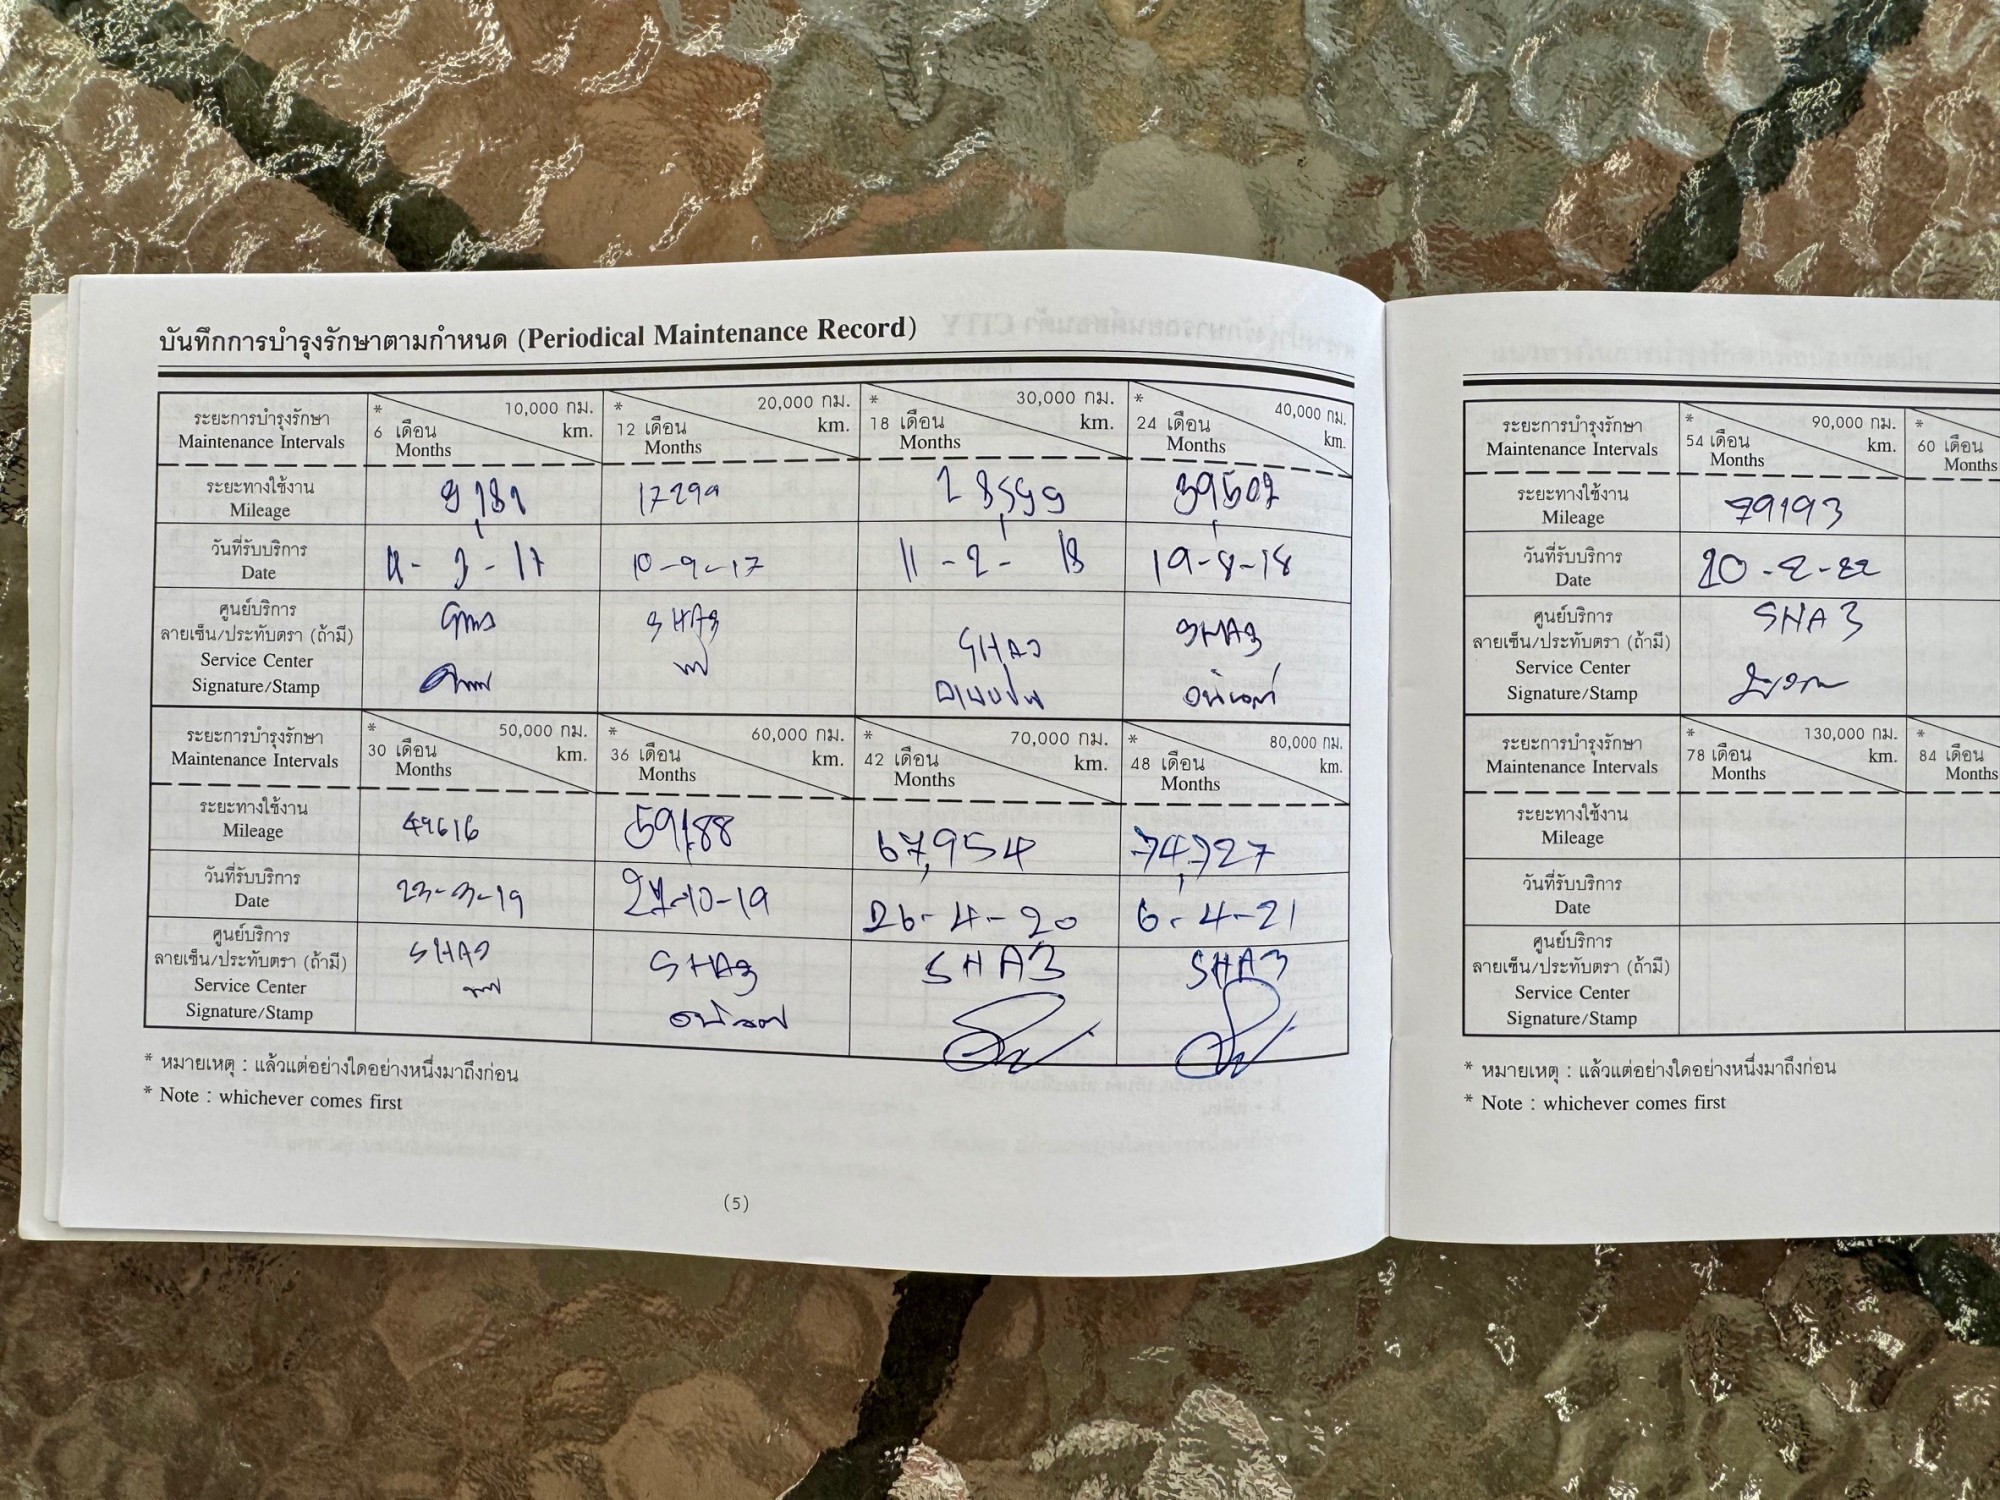 บันทึกการบำรุงรักษาตามกำหนด (Periodical Maintenance Record)
ระยะการบำรุงรักษา * 10,000 กม. * 20,000 กม. * 30,000 กม. * 40,000 กม.
6 เดือน km. 12 เดือน km. 18 เดือน km. 24 เดือน km.
Maintenance Intervals Months Months Months Months
ระยะทางใช้งาน
Mileage 17299 28,599 39,507
วันที่รับบริการ
Date 10-9-17 11-2-18 19-8-18
ศูนย์บริการ
ลายเซ็น/ประทับตรา (ถ้ามี) SHA3 SHA3 SHA3
Service Center
Signature/Stamp
ระยะการบำรุงรักษา * 50,000 กม. * 60,000 กม. * 70,000 กม. * 80,000 กม.
30 เดือน km. 36 เดือน km. 42 เดือน km. 48 เดือน km.
Maintenance Intervals Months Months Months Months
ระยะทางใช้งาน
Mileage 49616 59,188 67,954 74,727
วันที่รับบริการ
Date 23-3-19 26-4-20 6-4-21
ศูนย์บริการ
ลายเซ็น/ประทับตรา (ถ้ามี) SHA3 SHA3 SHA3 SHA3
Service Center
Signature/Stamp
* หมายเหตุ : แล้วแต่อย่างใดอย่างหนึ่งมาถึงก่อน
* Note : whichever comes first
(5)
ระยะการบำรุงรักษา * 90,000 กม. *
Maintenance Intervals 54 เดือน km. 60 เดือน
Months Months
ระยะทางใช้งาน
Mileage 79193
วันที่รับบริการ
Date 20-2-22
ศูนย์บริการ SHA3
ลายเซ็น/ประทับตรา (ถ้ามี)
Service Center
Signature/Stamp
ระยะการบำรุงรักษา * 130,000 กม. *
Maintenance Intervals 78 เดือน km. 84 เดือน
Months Months
ระยะทางใช้งาน
Mileage
วันที่รับบริการ
Date
ศูนย์บริการ
ลายเซ็น/ประทับตรา (ถ้ามี)
Service Center
Signature/Stamp
* หมายเหตุ : แล้วแต่อย่างใดอย่างหนึ่งมาถึงก่อน
* Note : whichever comes first